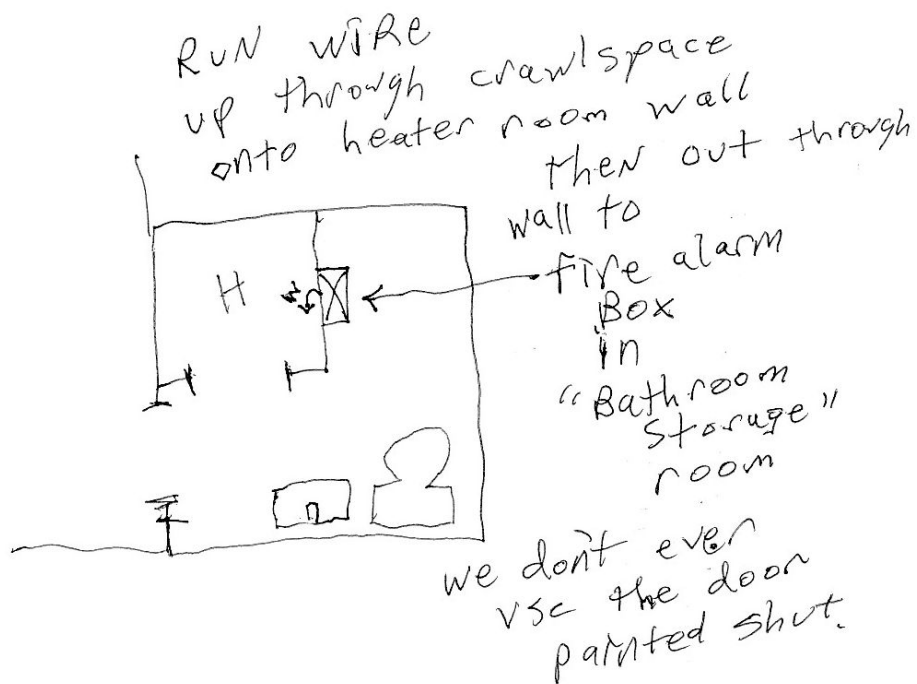 RUN WIRE
up through crawlspace
onto heater room wall
then out through
wall to
fire alarm
Box
in
"Bathroom
Storage"
room
H
we don't ever
use the door
painted shut.